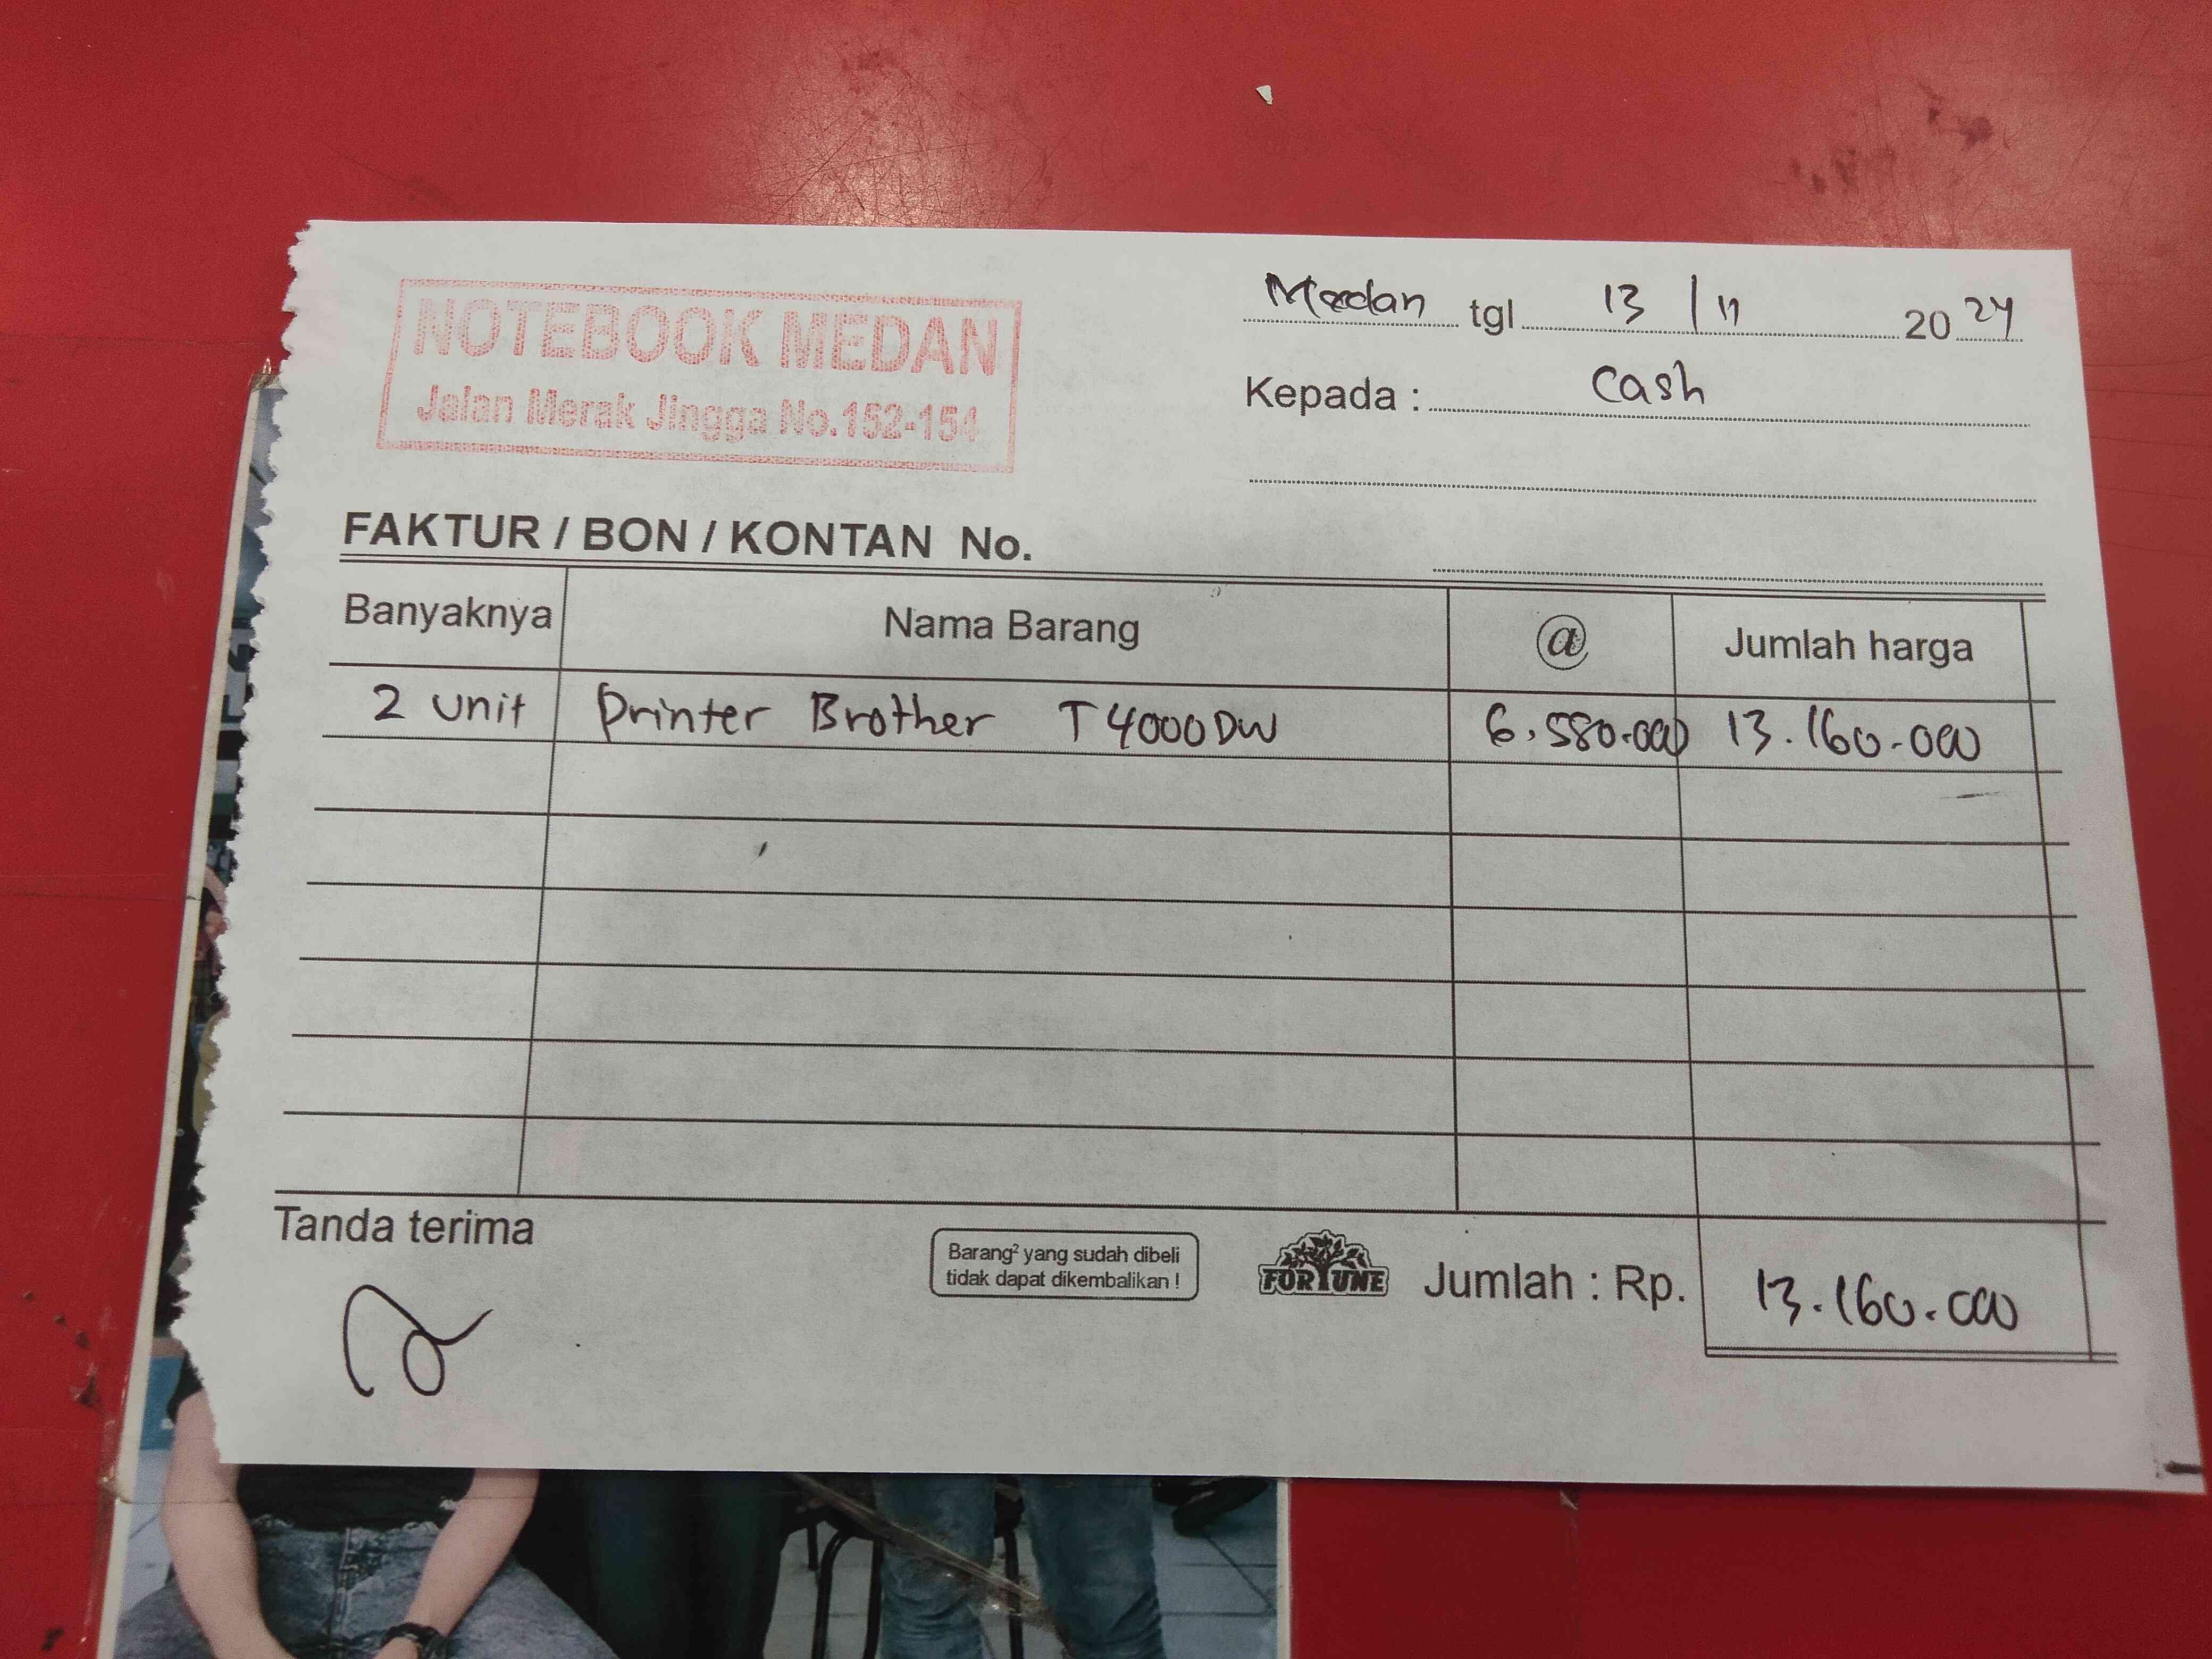 NOTEBOOK MEDAN
Jalan Merak Jingga No.152-154
Medan tgl 13 / 11 2024
Kepada : Cash
FAKTUR / BON / KONTAN No.
Banyaknya Nama Barang @ Jumlah harga
2 unit Printer Brother T4000DW 6.580.000 13.160.000
Tanda terima
Barang² yang sudah dibeli
tidak dapat dikembalikan !
FORTUNE
Jumlah : Rp. 13.160.000